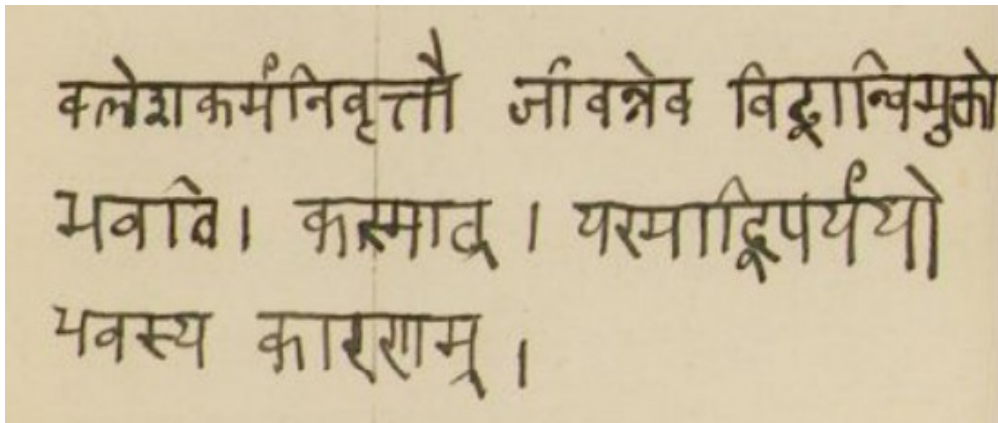 क्लेशकर्मनिवृत्तौ जीवन्नेव विद्वान्विमुक्तो
भवति। कस्मात् । यस्माद्विपर्ययो
भवस्य कारणम् ।